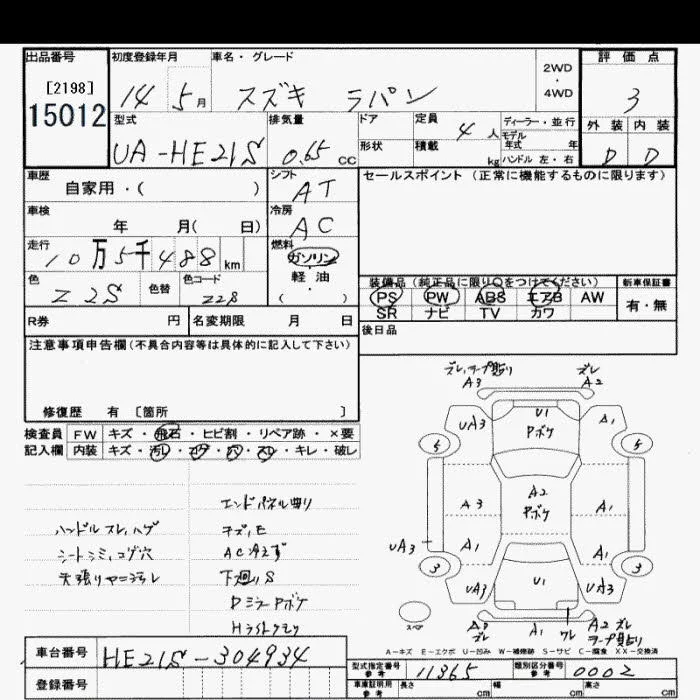 出品番号 初度登録年月 車名・グレード 評価点
[2198]
15012
14 5月 スズキ ラパン 2WD ・ 4WD 3
型式 排気量 ドア 定員 4人 ディーラー・並行 外装 内装
UA-HE21S 0.65 CC 形状 積載 kg モデル年式 年 ハンドル 左・右 D D
車歴 自家用・( ) シフト AT セールスポイント(正常に機能するものに限ります)
車検 年 月( 日) 冷房 AC
走行 10万5千488km 燃料 ガソリン
軽油
・
( )
色 Z2S 色替 色コード Z2S
装備品(純正品に限り○をつけてください) 新車保証書
PS PW ABS エアB AW 有・無
SR ナビ TV カワ
R券 円 名変期限 月 日 後日品
注意事項申告欄(不具合内容等は具体的に記入して下さい)
修復歴 有 [箇所 ]
検査員 FW キズ・飛石・ヒビ割・リペア跡・×要
記入欄 内装 キズ・汚レ・コゲ・穴・スレ・キレ・破レ
エンドパネル曲り
ハンドルスレ,ハゲ キズ,E
シートシミ,コゲ穴 AC冷えず
天張りヤニヨゴレ 下回りS
DミラーPボケ
Hライトクモリ
ズレ,テープ貼り ズレ
A3 A2
UA3 U1 Pボケ A1
5 5
A3 A2 Pボケ A1
UA3 A1 A1
3 3
UA3 U1 UA3
スペア A3 ズレ A1 ワレ A2 ズレ テープ貼り
A-キズ E-エクボ U-凹み W-補修跡 S-サビ C-腐食 XX-交換済
車台番号 HE21S-304934
登録番号
型式指定番号 参考 11365 類別区分番号 参考 0002
車庫証明用 参考 長さ cm 幅 cm 高さ cm